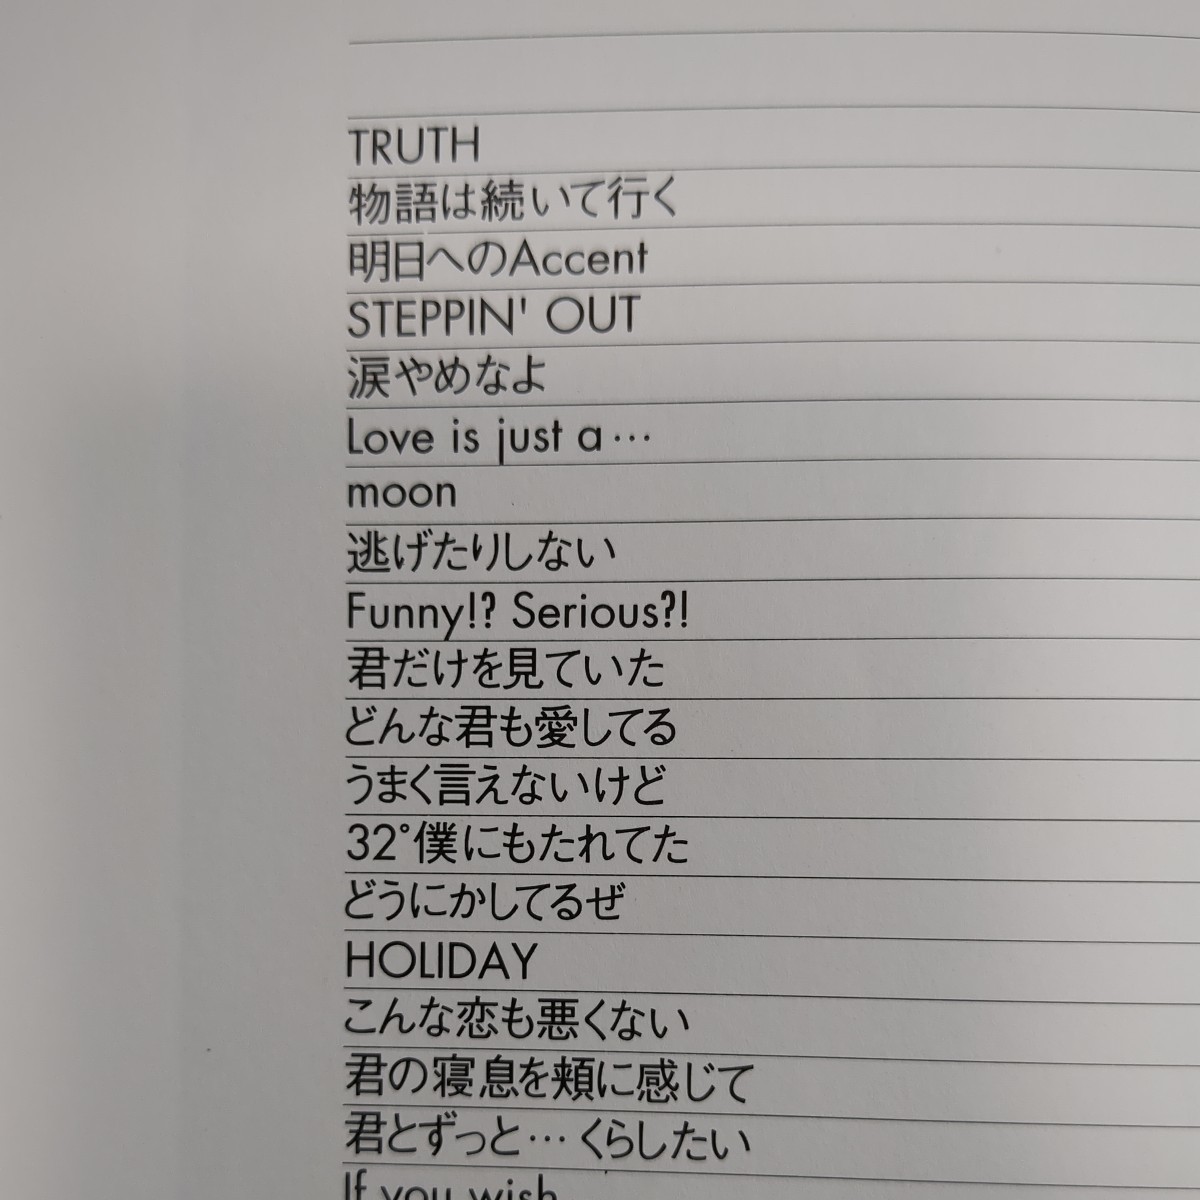 TRUTH
物語は続いて行く
明日へのAccent
STEPPIN' OUT
涙やめなよ
Love is just a…
moon
逃げたりしない
Funny!? Serious?!
君だけを見ていた
どんな君も愛してる
うまく言えないけど
32°僕にもたれてた
どうにかしてるぜ
HOLIDAY
こんな恋も悪くない
君の寝息を頬に感じて
君とずっと…くらしたい
If you wish